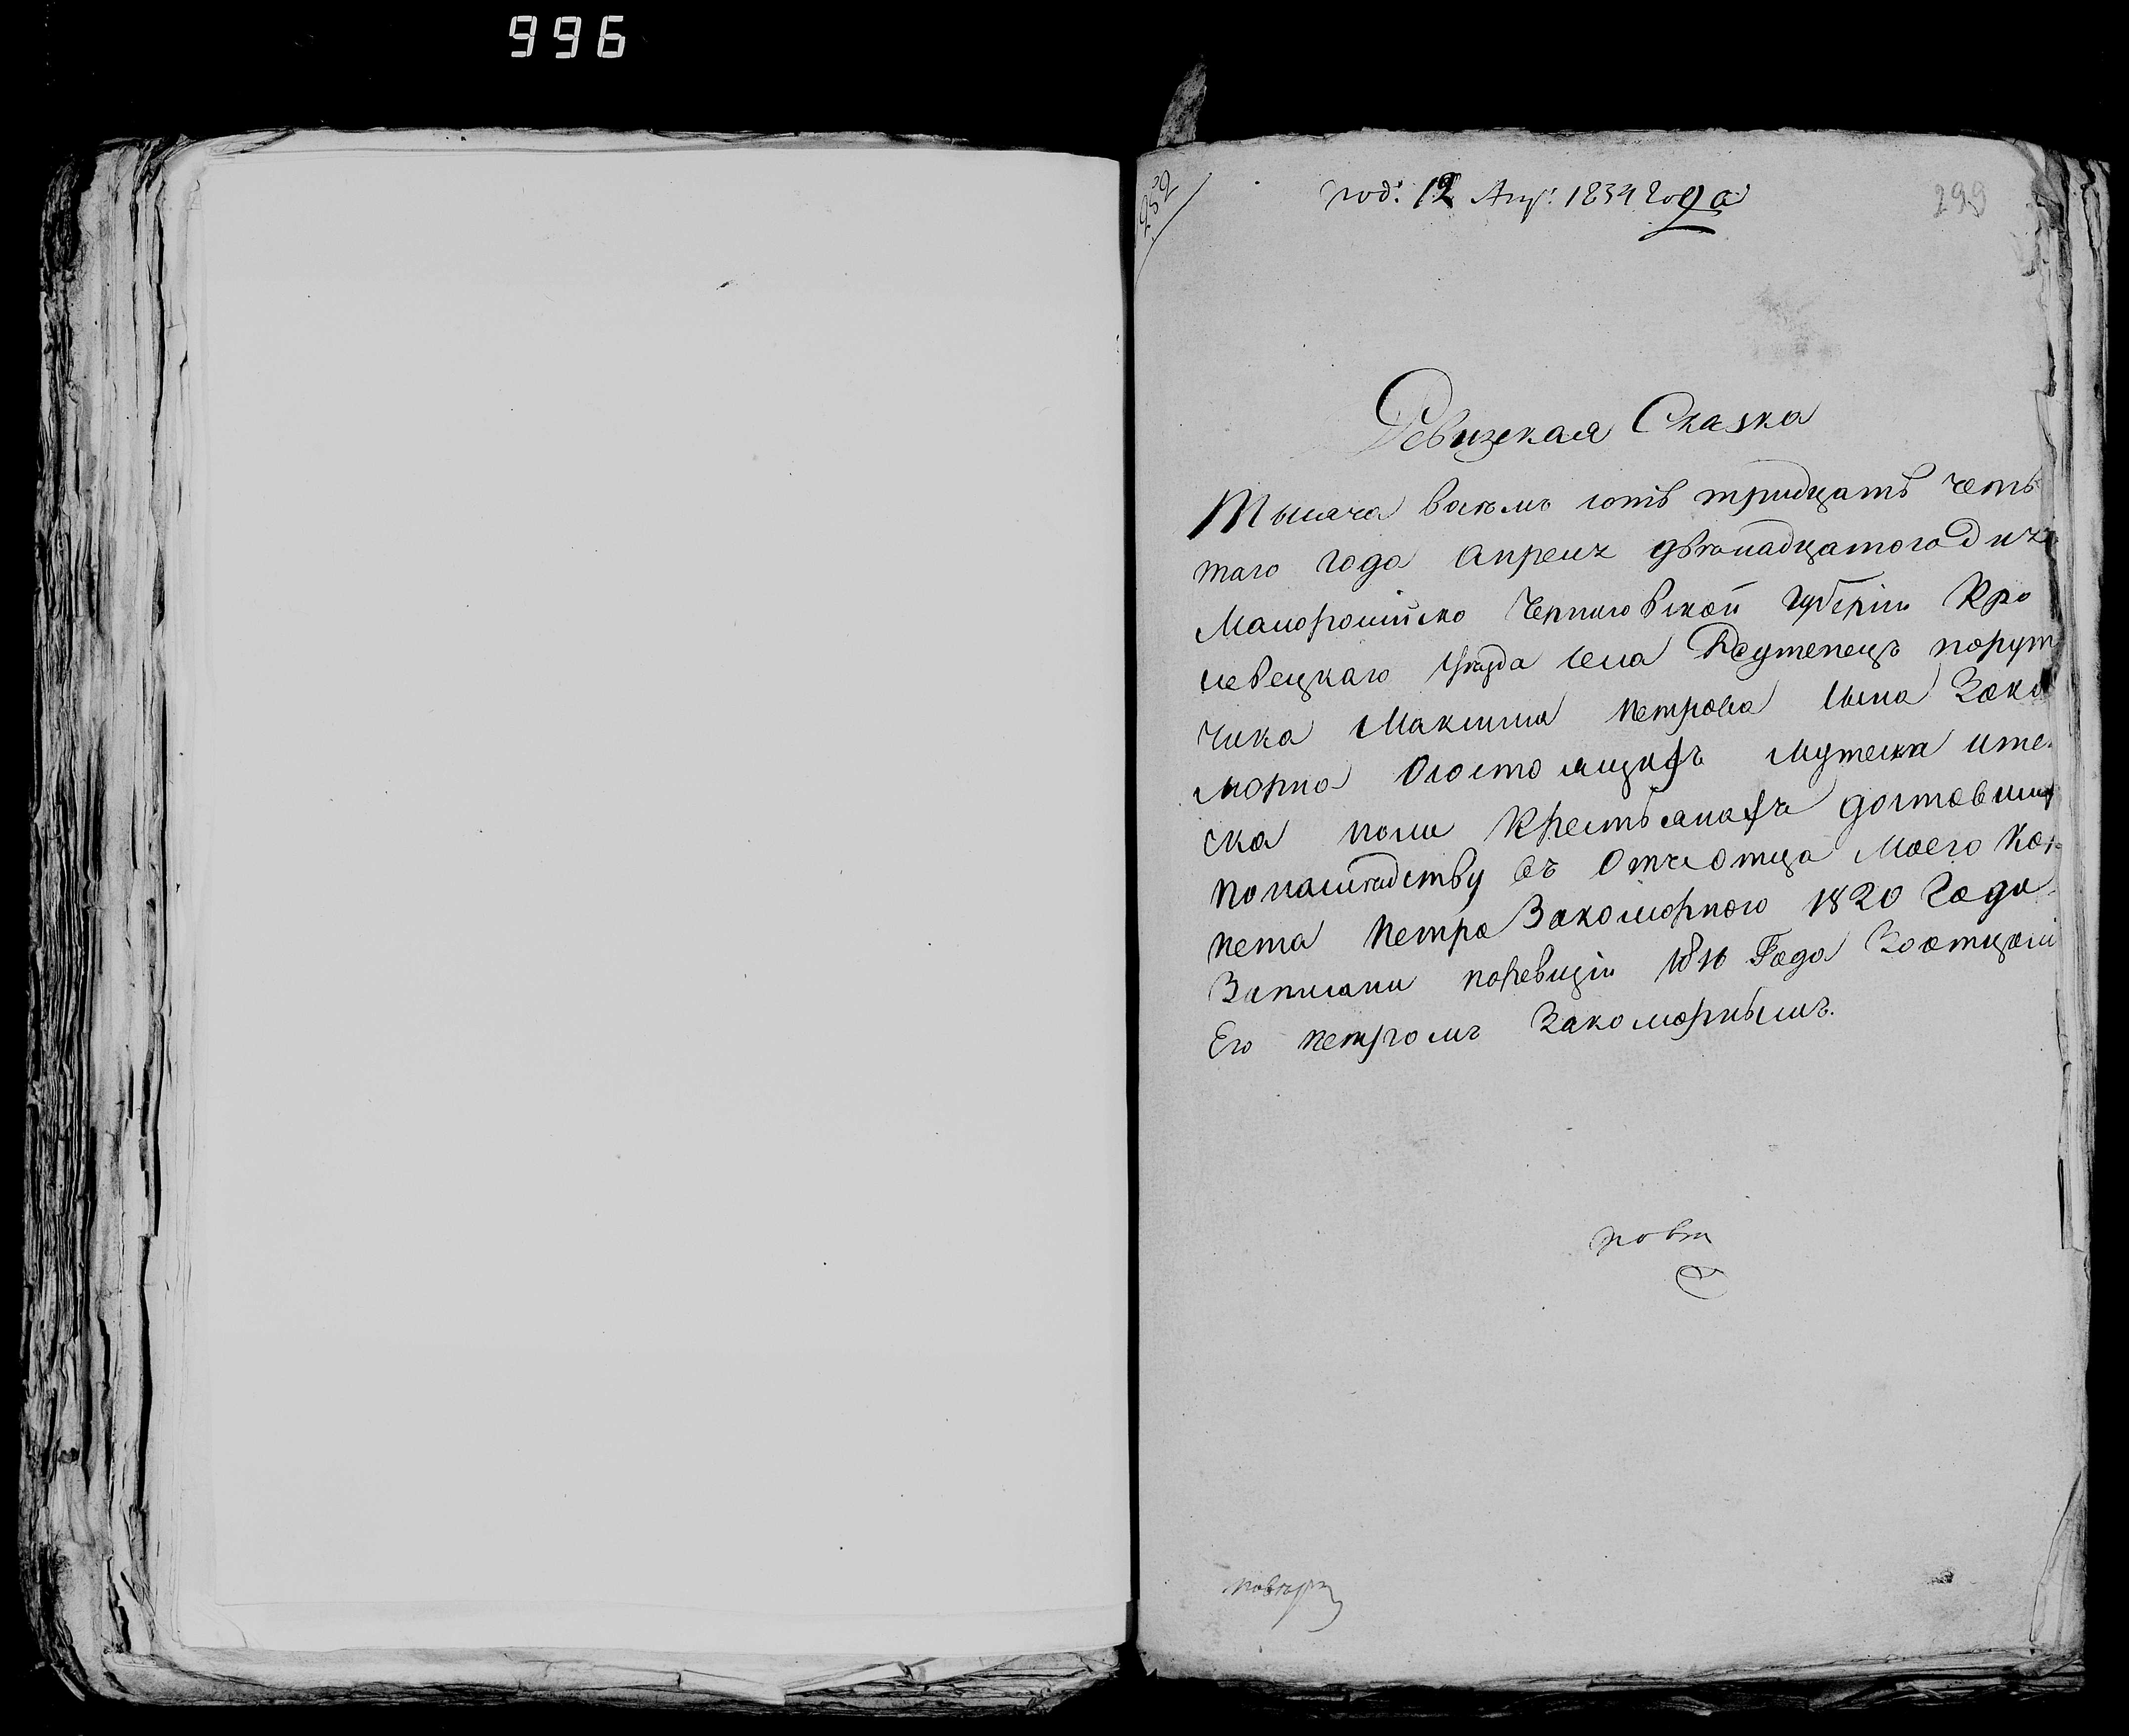 996
252
под: 12 Апр: 1834 года
299
Ревизская Сказка
Тысяча восемь сотъ тридцать четь
таго года Апреля двенадцатого дня
Малоросийско Черниговской губернiи Кро
левецкаго уезда села Реутенецъ порут
чика Максима Петрова сына Зако
морно О состоящихъ мужеска и же
ска пола крестьянахъ доставши
по наследству отца моего
Петра Закоморного 1820 Года
Записани по ревизiи 1816 Года За отцем
Его Петромъ Закоморнымъ.